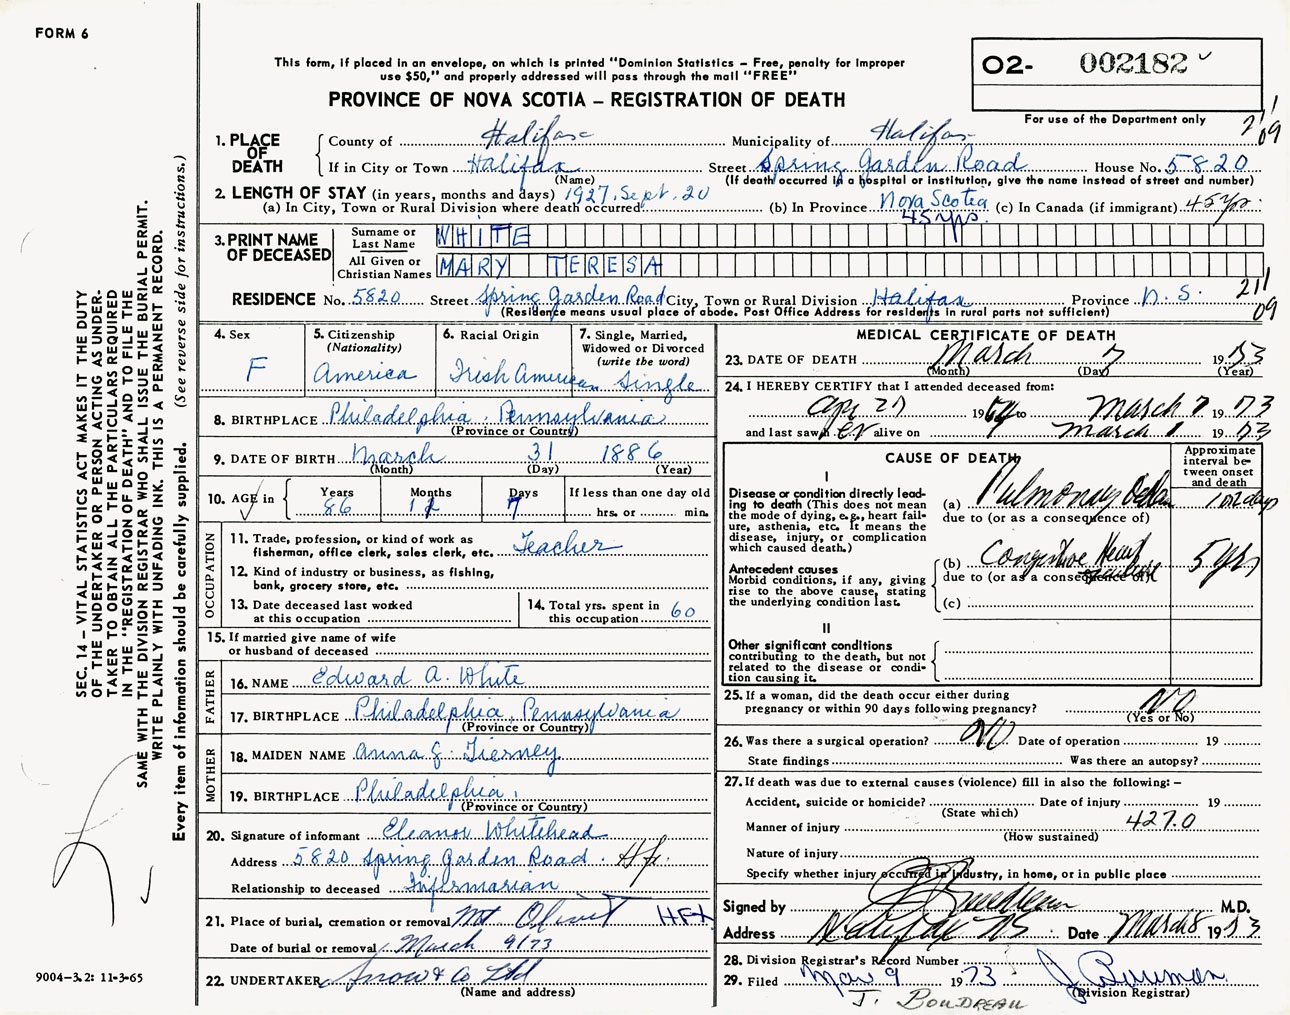 FORM 6
This form, if placed in an envelope, on which is printed "Dominion Statistics – Free, penalty for improper
use $50," and properly addressed will pass through the mail "FREE"
PROVINCE OF NOVA SCOTIA – REGISTRATION OF DEATH
02- 002182
For use of the Department only
211
09
SEC. 14 – VITAL STATISTICS ACT MAKES IT THE DUTY
OF THE UNDERTAKER OR PERSON ACTING AS UNDER-
TAKER TO OBTAIN ALL THE PARTICULARS REQUIRED
IN THE "REGISTRATION OF DEATH" AND TO FILE THE
SAME WITH THE DIVISION REGISTRAR WHO SHALL ISSUE THE BURIAL PERMIT.
WRITE PLAINLY WITH UNFADING INK. THIS IS A PERMANENT RECORD.
Every item of information should be carefully supplied. (See reverse side for instructions.)
1. PLACE OF DEATH
County of Halifax Municipality of Halifax
If in City or Town Halifax Street Spring Garden Road House No. 5820
(Name) (If death occurred in a hospital or institution, give the name instead of street and number)
2. LENGTH OF STAY (in years, months and days) 1927, Sept. 20
(a) In City, Town or Rural Division where death occurred (b) In Province Nova Scotia 45 yrs. (c) In Canada (if immigrant) 45 yrs.
3. PRINT NAME OF DECEASED
Surname or Last Name WHITE
All Given or Christian Names MARY TERESA
RESIDENCE No. 5820 Street Spring Garden Road City, Town or Rural Division Halifax Province N. S.
(Residence means usual place of abode. Post Office Address for residents in rural parts not sufficient)
211
09
4. Sex F
5. Citizenship (Nationality) America
6. Racial Origin Irish American
7. Single, Married, Widowed or Divorced (write the word) Single
8. BIRTHPLACE Philadelphia, Pennsylvania
(Province or Country)
9. DATE OF BIRTH March 31 1886
(Month) (Day) (Year)
10. AGE in Years 86 Months 11 Days 7 If less than one day old
hrs. or min.
OCCUPATION
11. Trade, profession, or kind of work as
fisherman, office clerk, sales clerk, etc. Teacher
12. Kind of industry or business, as fishing,
bank, grocery store, etc.
13. Date deceased last worked
at this occupation
14. Total yrs. spent in
this occupation 60
15. If married give name of wife
or husband of deceased
FATHER
16. NAME Edward A. White
17. BIRTHPLACE Philadelphia, Pennsylvania
(Province or Country)
MOTHER
18. MAIDEN NAME Anna G. Tierney
19. BIRTHPLACE Philadelphia
(Province or Country)
20. Signature of informant Eleanor Whitehead
Address 5820 Spring Garden Road. Hfx.
Relationship to deceased Infirmarian
21. Place of burial, cremation or removal Mt Olivet HFX
Date of burial or removal March 9/73
22. UNDERTAKER Snow & Co Ltd
(Name and address)
MEDICAL CERTIFICATE OF DEATH
23. DATE OF DEATH March 7 1973
(Month) (Day) (Year)
24. I HEREBY CERTIFY that I attended deceased from:
Apr 27 19 to March 7 1973
and last saw er alive on March 1973
CAUSE OF DEATH
Approximate interval between onset and death
I
Disease or condition directly lead-
ing to death (This does not mean
the mode of dying, e.g., heart fail-
ure, asthenia, etc. It means the
disease, injury, or complication
which caused death.)
(a) Pulmonary days
due to (or as a consequence of)
Antecedent causes
Morbid conditions, if any, giving
rise to the above cause, stating
the underlying condition last.
(b) Congestive Heart failure 5 yrs
due to (or as a consequence of)
(c)
II
Other significant conditions
contributing to the death, but not
related to the disease or condi-
tion causing it.
25. If a woman, did the death occur either during
pregnancy or within 90 days following pregnancy? NO
(Yes or No)
26. Was there a surgical operation? NO Date of operation 19
State findings Was there an autopsy?
27. If death was due to external causes (violence) fill in also the following: –
Accident, suicide or homicide? Date of injury 19
(State which)
Manner of injury 427.0
(How sustained)
Nature of injury
Specify whether injury occurred in industry, in home, or in public place
Signed by M.D.
Address Halifax NS Date March 8 1973
28. Division Registrar's Record Number
29. Filed Mar 9 1973
(Division Registrar)
J. BOUDREAU
9004-3.2: 11-3-65